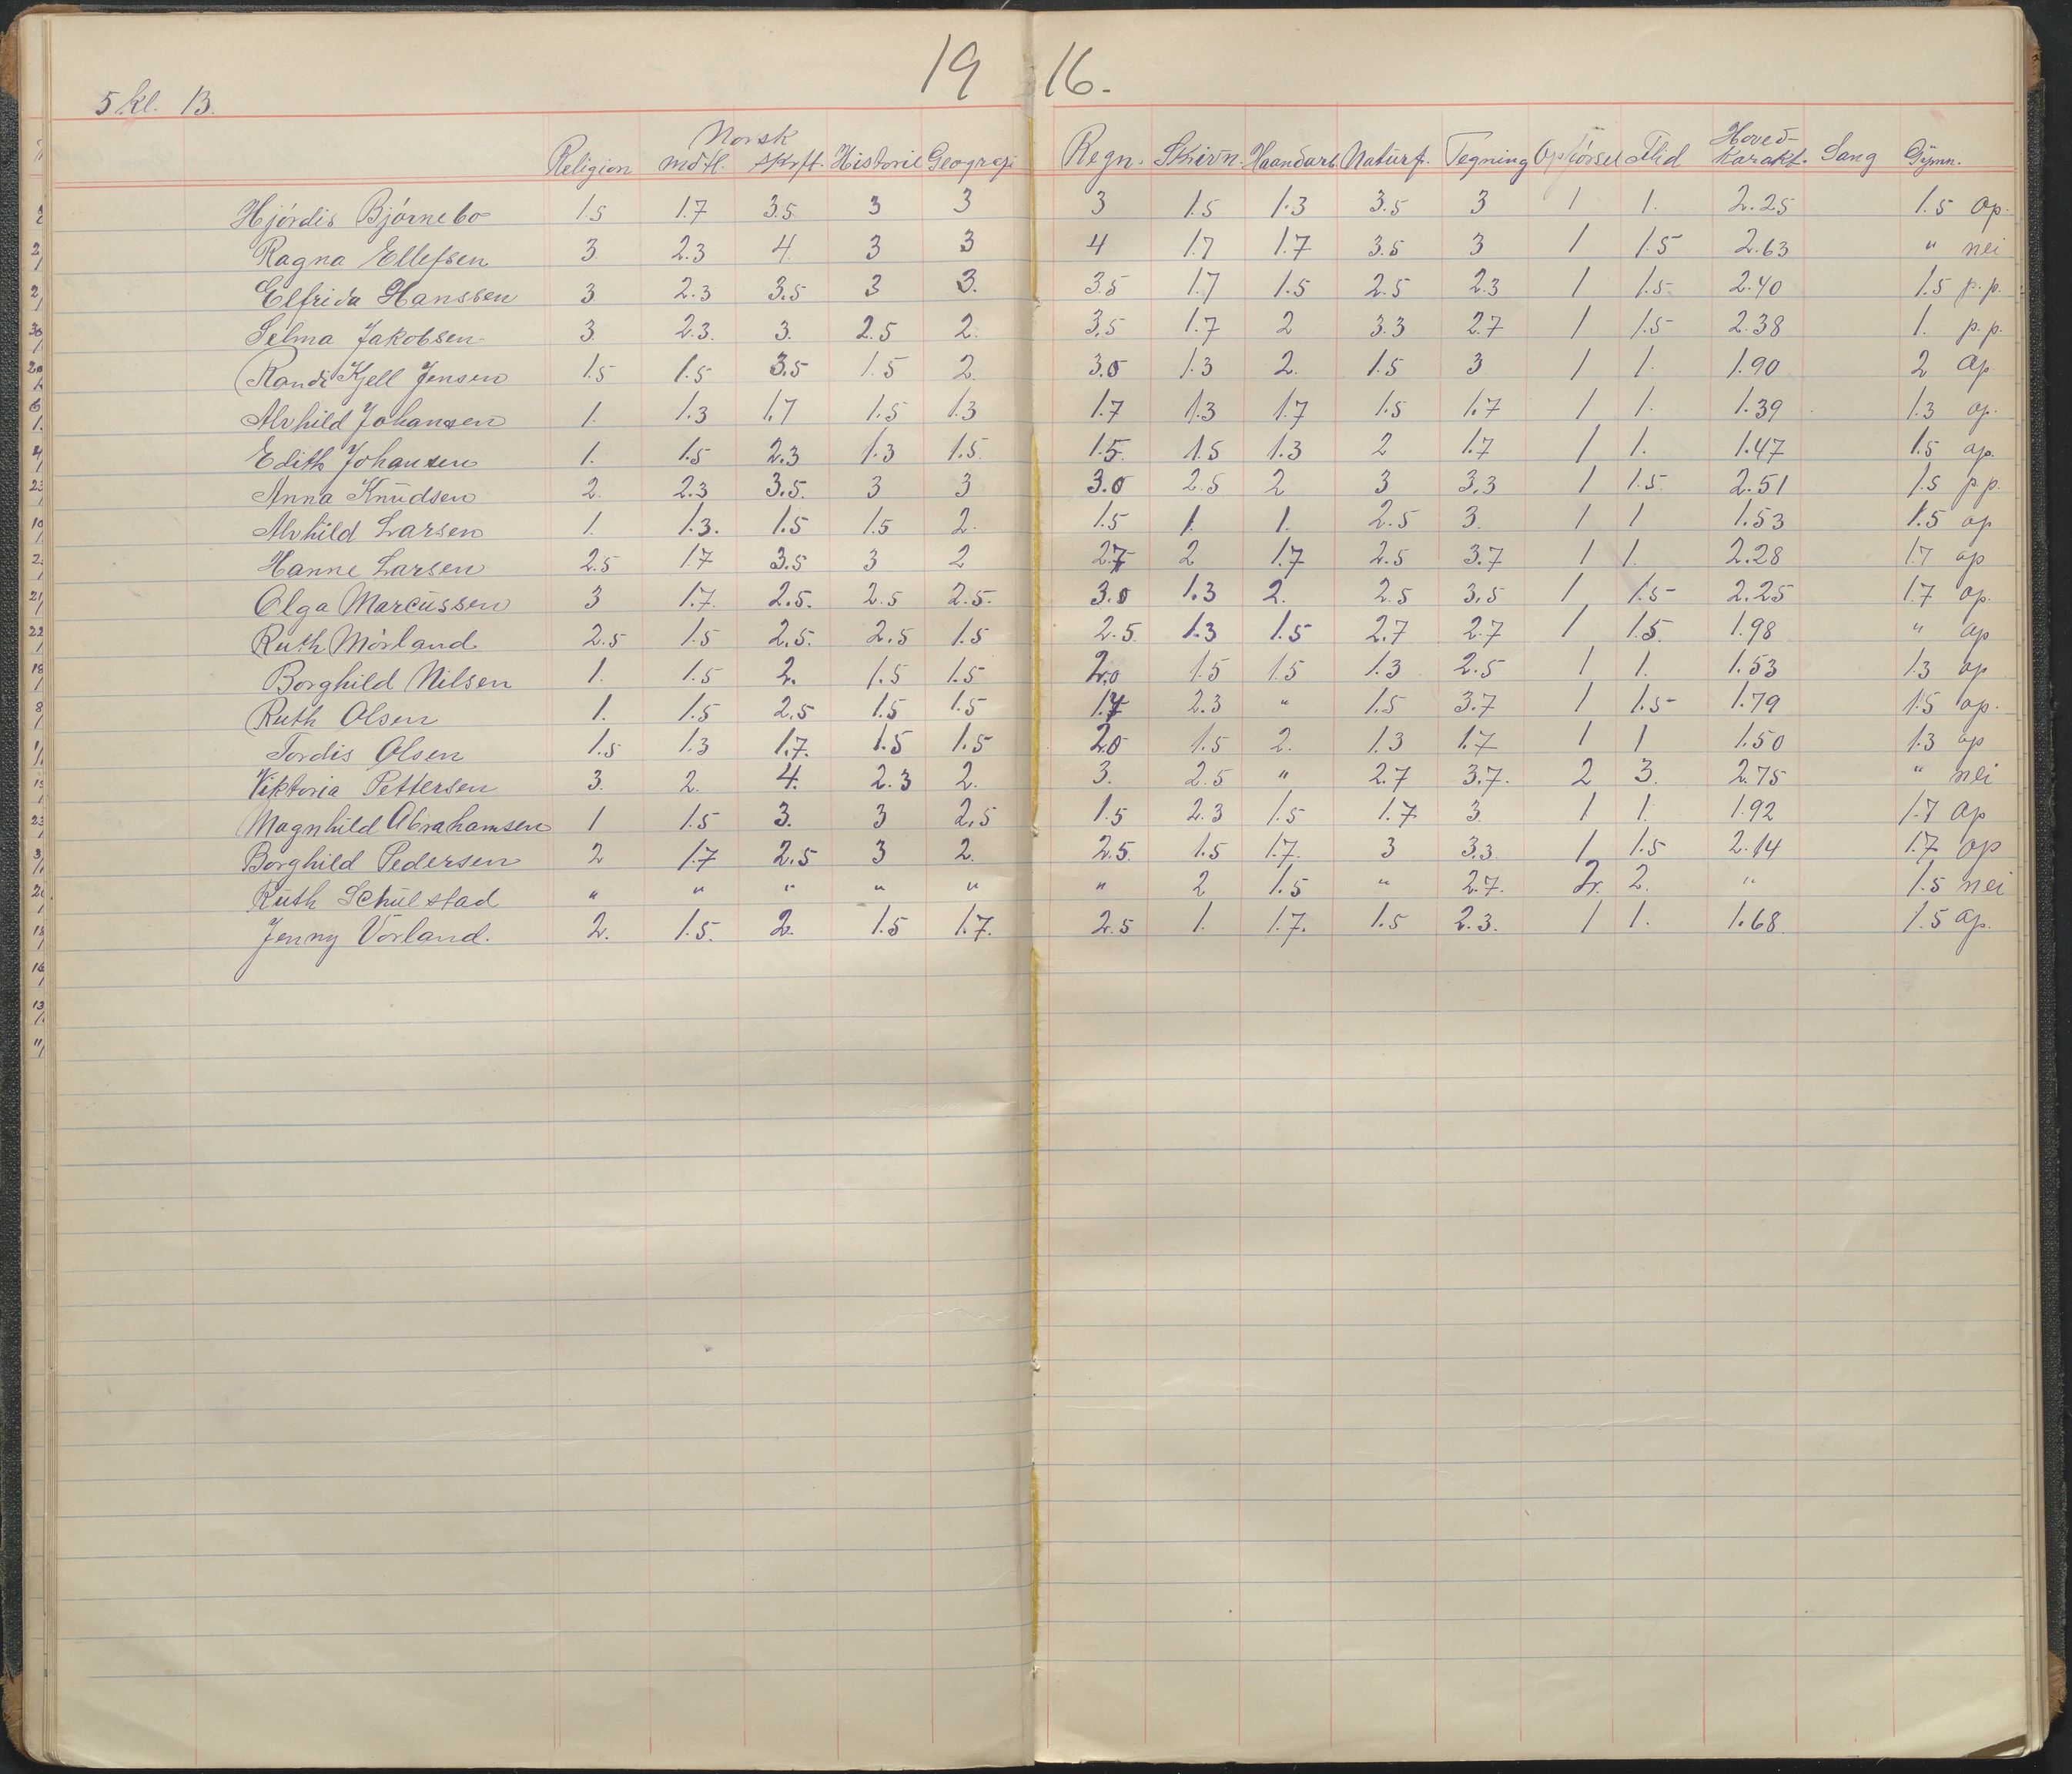 19 16.
5 kl. B.
Religion Norsk mdtl. skrftl. Historie Geografi Regn. Skrivn. Haandarb. Naturf. Tegning Opførsel Flid Hoved-Karakt. Sang Gymn.
Hjördis Björnebo 1.5 1.7 3.5 3 3 3 1.5 1.3 3.5 3 1 1. 2.25 1.5 op.
Ragna Ellefsen 3 2.3 4. 3 3 4 1.7 1.7 3.5 3 1 1.5 2.63 " nei
Elfrida Hanssen 3 2.3 3.5 3 3. 3.5 1.7 1.5 2.5 2.3 1 1.5 2.40 1.5 p.p.
Selma Jakobsen 3. 2.3. 3. 2.5 2. 3.5 1.7 2 3.3 2.7 1 1.5 2.38 1. p.p.
Randi Kjell Jensen 1.5 1.5 3.5 1.5 2. 3.0 1.3 2. 1.5 3 1 1. 1.90 2 op.
Alvhild Johansen 1. 1.3 1.7 1.5 1.3 1.7 1.3 1.7 1.5 1.7 1 1. 1.39 1.3 op.
Edith Johansen 1. 1.5 2.3 1.3 1.5. 1.5. 1.5 1.3 2 1.7 1 1. 1.47 1.5 op.
Anna Knudsen 2. 2.3 3.5. 3 3 3.0 2.5 2 3 3.3 1 1.5 2.51 1.5 p.p.
Alvhild Larsen 1. 1.3. 1.5 1.5 2. 1.5 1. 1. 2.5 3. 1 1 1.53 1.5 op
Hanne Larsen 2.5 1.7 3.5 3 2 2.7 2 1.7 2.5 3.7 1 1. 2.28 1.7 op
Olga Marcussen 3 1.7. 2.5. 2.5 2.5. 3.0 1.3 2. 2.5 3.5 1 1.5 2.25 1.7 op.
Ruth Mörland 2.5 1.5 2.5. 2.5 1.5 2.5. 1.3 1.5 2.7 2.7 1 1.5. 1.98 " op
Borghild Nilsen 1. 1.5 2. 1.5 1.5 2.0 1.5 1.5 1.3 2.5 1 1. 1.53 1.3 op
Ruth Olsen 1. 1.5 2.5 1.5 1.5 1.7 2.3 " 1.5 3.7 1 1.5 1.79 1.5 op.
Tordis Olsen 1.5 1.3 1.7. 1.5 1.5 2.0 1.5 2. 1.3 1.7 1 1 1.50 1.3 op
Viktoria Pettersen 3. 2. 4. 2.3 2. 3. 2.5 " 2.7 3.7. 2 3. 2.75 " nei
Magnhild Abrahamsen 1 1.5 3. 3 2.5 1.5 2.3 1.5 1.7 3. 1 1. 1.92 1.7 op
Borghild Pedersen 2 1.7 2.5 3 2. 2.5. 1.5 1.7. 3 3.3. 1 1.5 2.14 1.7 op
Ruth Schulstad " " " " " " 2 1.5 " 2.7. 2. 2. " 1.5 nei
Jenny Vorland. 2. 1.5. 2. 1.5 1.7. 2.5 1. 1.7. 1.5 2.3. 1 1. 1.68 1.5 op.